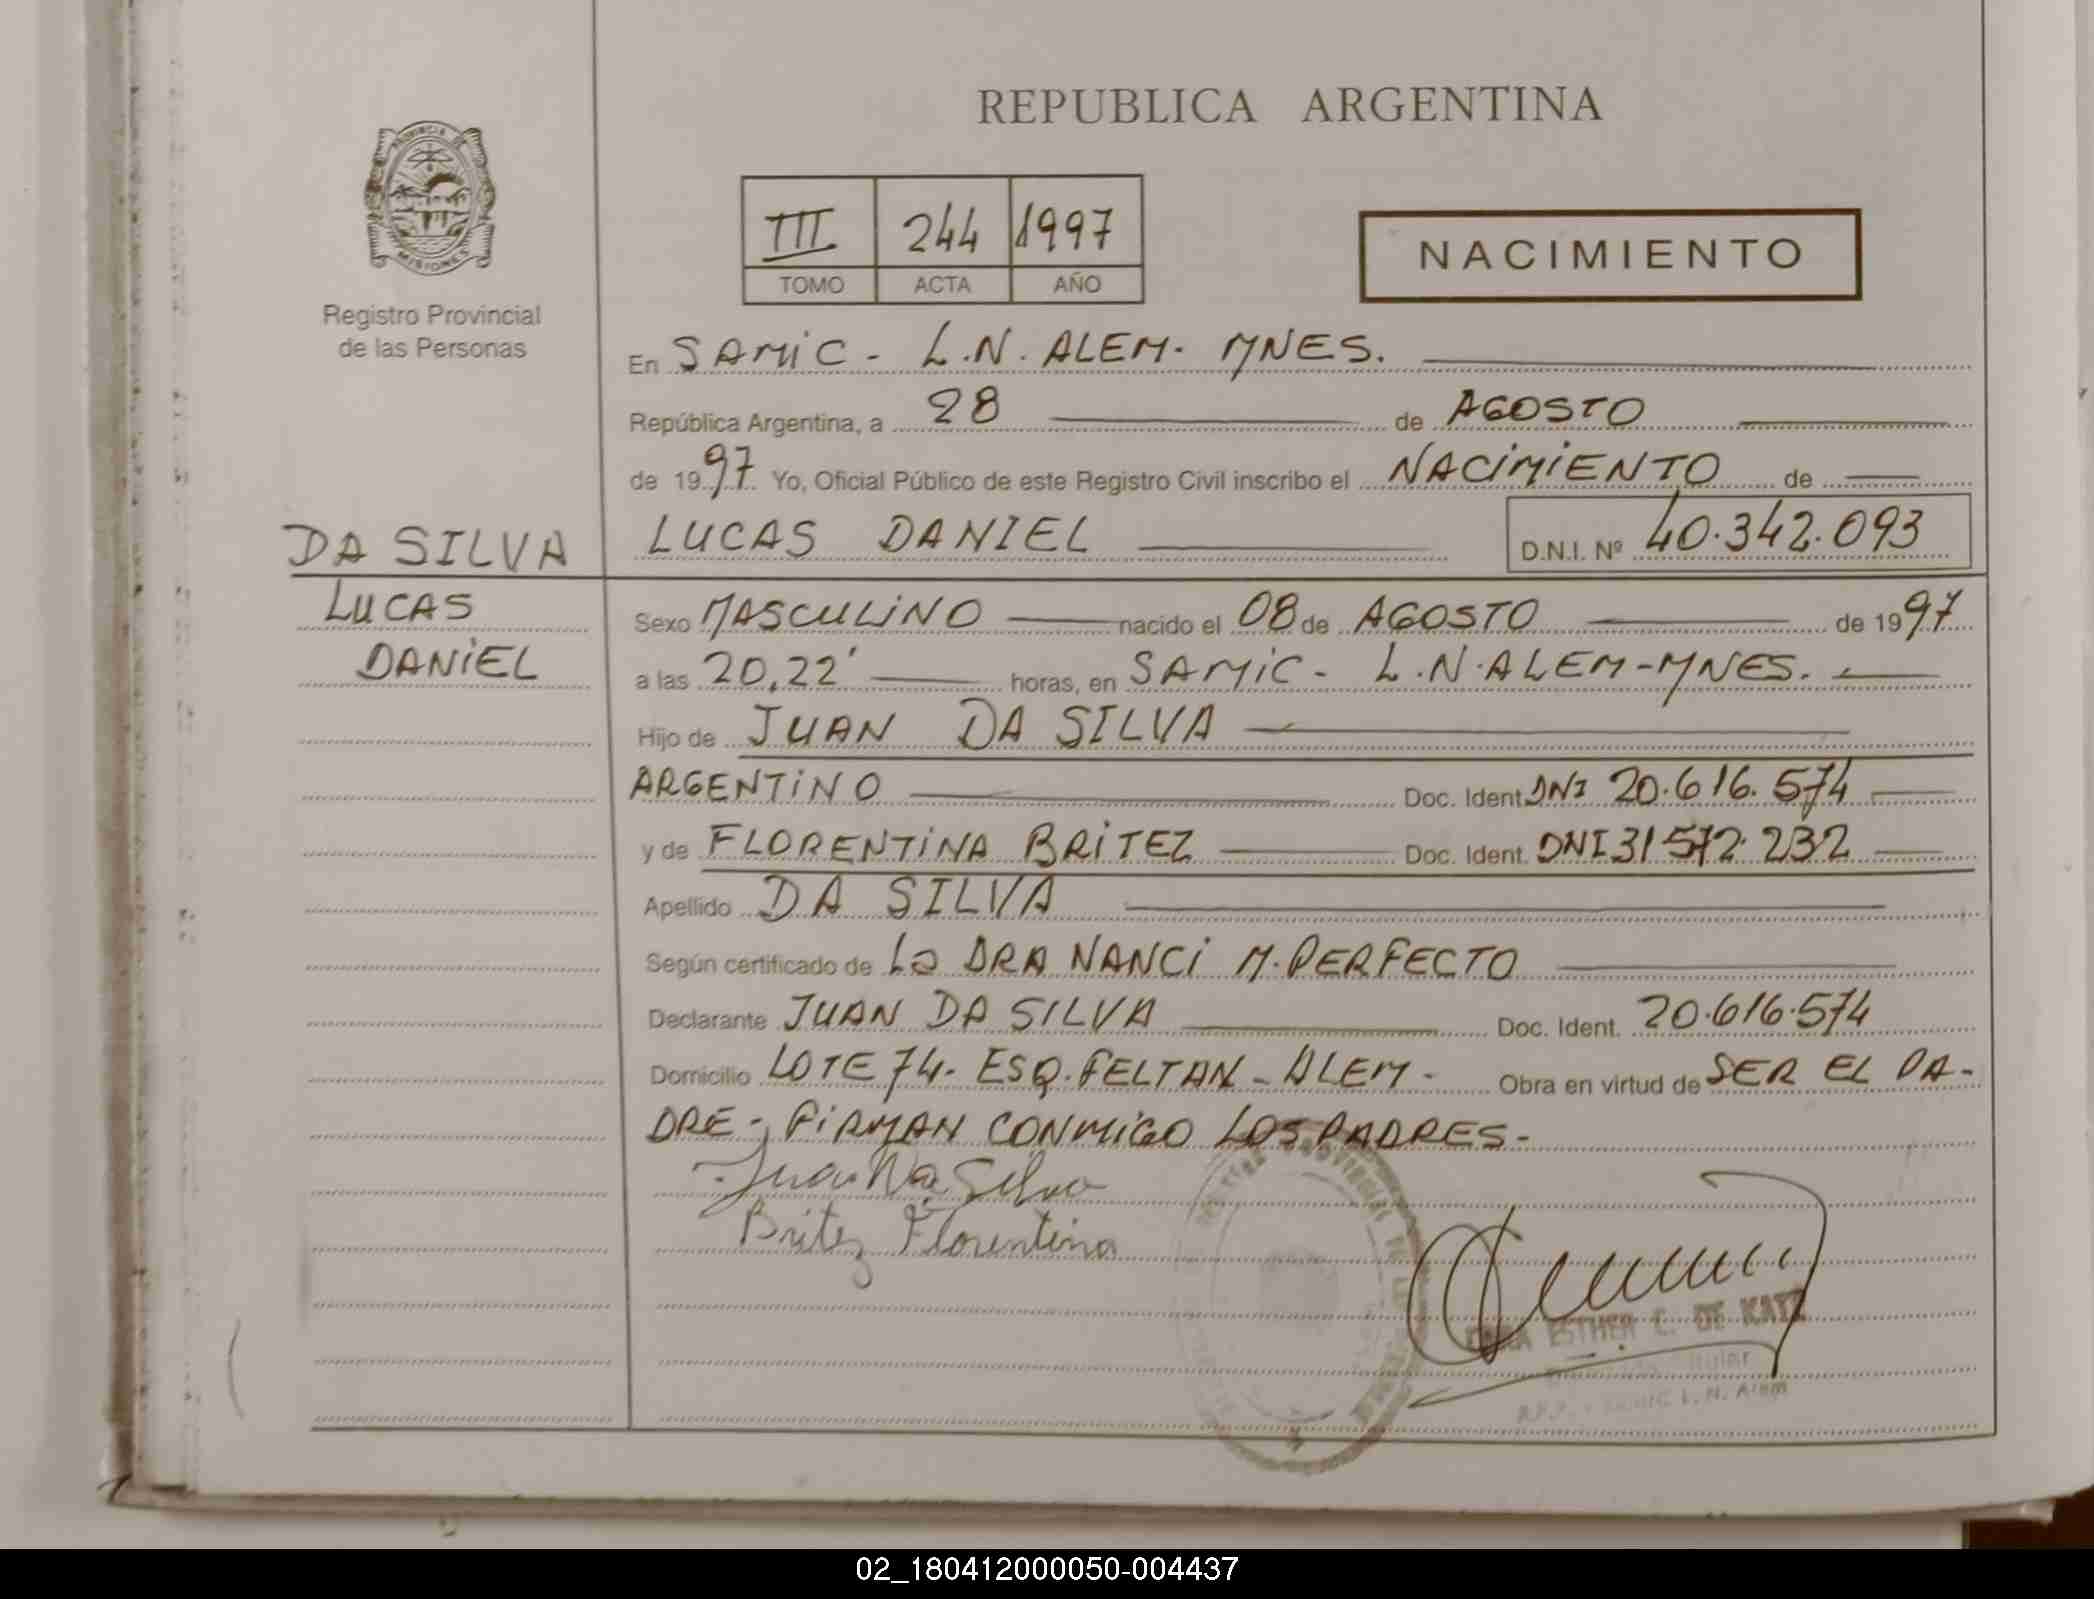 REPUBLICA ARGENTINA
PROVINCIA DE
MISIONES
Registro Provincial
de las Personas
III 244 1997
TOMO ACTA AÑO
NACIMIENTO
En SAMIC - L.N. ALEM - MNES.
República Argentina, a 28 de AGOSTO
de 1997 Yo, Oficial Público de este Registro Civil inscribo el NACIMIENTO de
DA SILVA LUCAS DANIEL D.N.I. Nº 40.342.093
LUCAS
DANIEL
Sexo MASCULINO nacido el 08 de AGOSTO de 1997
a las 20,22' horas, en SAMIC - L.N. ALEM - MNES.
Hijo de JUAN DA SILVA
ARGENTINO Doc. Ident. DNI 20.616.574
y de FLORENTINA BRITEZ Doc. Ident. DNI 31572.232
Apellido DA SILVA
Según certificado de La DRA NANCI M. PERFECTO
Declarante JUAN DA SILVA Doc. Ident. 20.616.574
Domicilio LOTE 74. ESQ. FELTAN - ALEM - Obra en virtud de SER EL PA-
DRE -, FIRMAN CONMIGO LOS PADRES -
Juan Da Silva
Britez Florentina
ESTHER C. DE KATZ
Titular
L. N. Alem
02_180412000050-004437